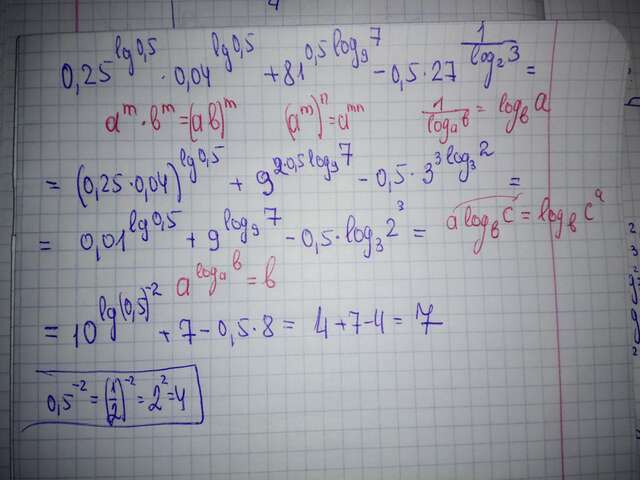 0,25^{lg 0,5} · 0,04^{lg 0,5} + 81^{0,5 log_9 7} - 0,5 · 27^{\frac{1}{log_2 3}} =
a^m · b^m = (ab)^m (a^m)^n = a^{mn} \frac{1}{log_a b} = log_b a
= (0,25 · 0,04)^{lg 0,5} + 9^{2·0,5 log_9 7} - 0,5 · 3^{3 log_3 2} =
= 0,01^{lg 0,5} + 9^{log_9 7} - 0,5 · log_3 2^3 = a log_b c = log_b c^a
a^{log_a b} = b
= 10^{lg(0,5)^{-2}} + 7 - 0,5 · 8 = 4 + 7 - 4 = 7
0,5^{-2} = (\frac{1}{2})^{-2} = 2^2 = 4